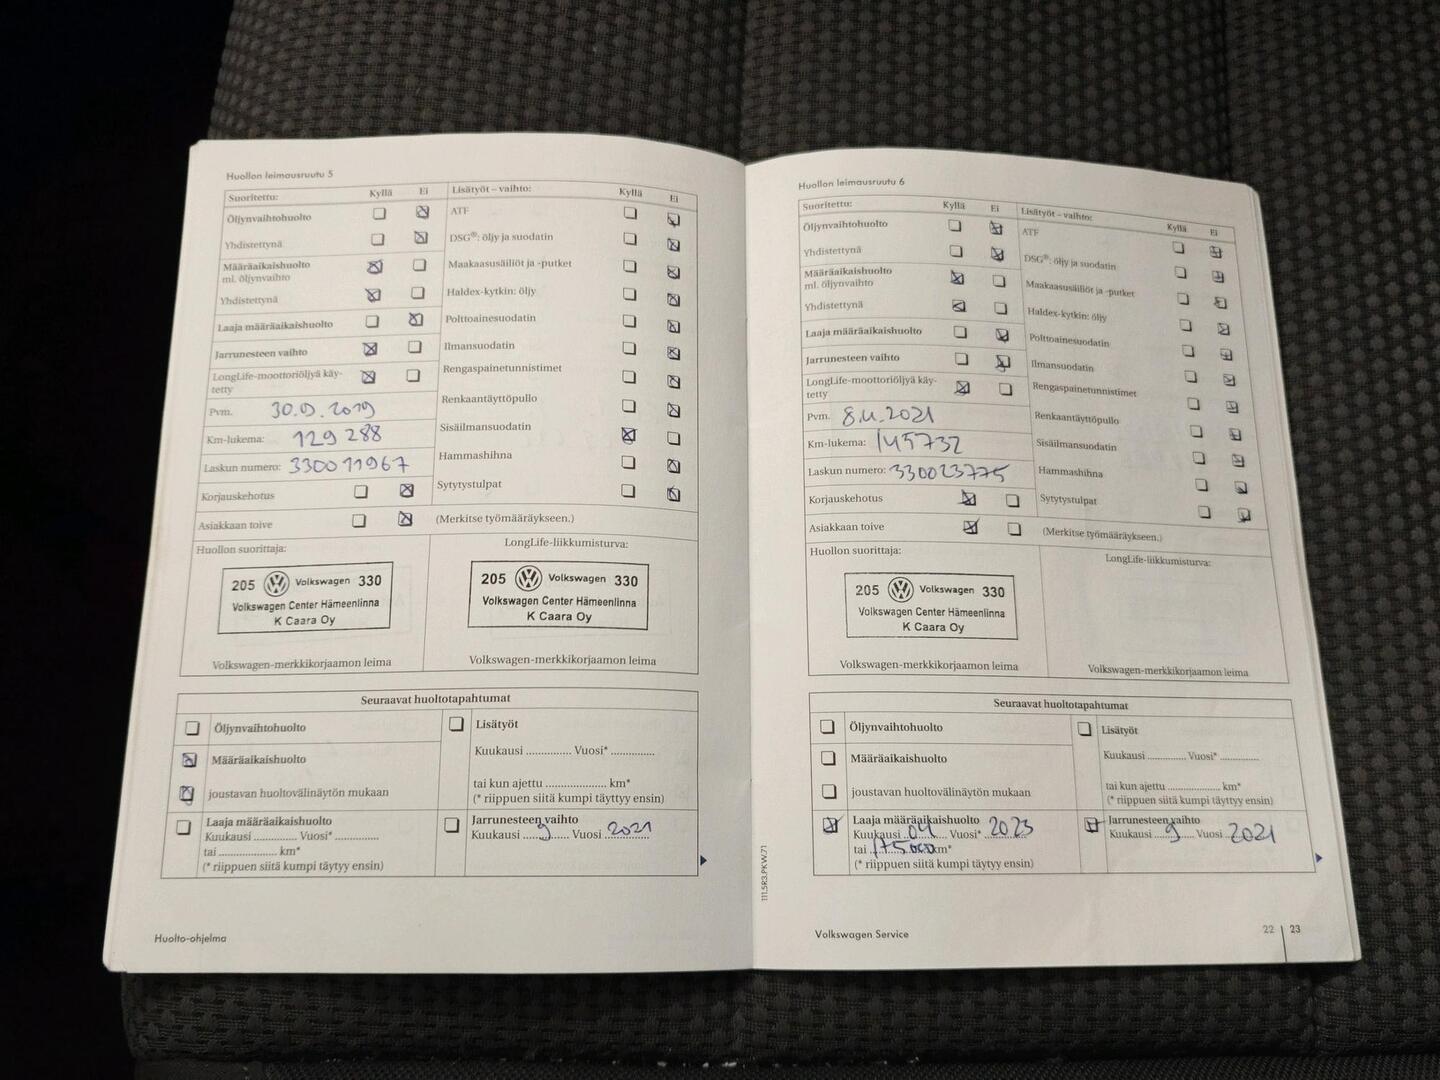 Huollon leimausruutu 5
Suoritettu: Kyllä Ei Lisätyöt – vaihto: Kyllä Ei
Öljynvaihtohuolto ATF
Yhdistettynä DSG®: öljy ja suodatin
Määräaikaishuolto Maakaasusäiliöt ja -putket
ml. öljynvaihto
Yhdistettynä Haldex-kytkin: öljy
Laaja määräaikaishuolto Polttoainesuodatin
Jarrunesteen vaihto Ilmansuodatin
LongLife-moottoriöljyä käy- Rengaspainetunnistimet
tetty
Pvm. 30.9.2019 Renkaantäyttöpullo
Km-lukema: 129 288 Sisäilmansuodatin
Laskun numero: 330011967 Hammashihna
Korjauskehotus Sytytystulpat
Asiakkaan toive (Merkitse työmääräykseen.)
Huollon suorittaja: LongLife-liikkumisturva:
205 Volkswagen 330 205 Volkswagen 330
Volkswagen Center Hämeenlinna Volkswagen Center Hämeenlinna
K Caara Oy K Caara Oy
Volkswagen-merkkikorjaamon leima Volkswagen-merkkikorjaamon leima
Seuraavat huoltotapahtumat
Öljynvaihtohuolto Lisätyöt
Määräaikaishuolto Kuukausi ............... Vuosi* ...............
joustavan huoltovälinäytön mukaan tai kun ajettu ..................... km*
(* riippuen siitä kumpi täyttyy ensin)
Laaja määräaikaishuolto Jarrunesteen vaihto
Kuukausi ............... Vuosi* ............... Kuukausi 9 Vuosi 2021
tai ..................... km*
(* riippuen siitä kumpi täytyy ensin)
Huolto-ohjelma
Huollon leimausruutu 6
Suoritettu: Kyllä Ei Lisätyöt – vaihto: Kyllä Ei
Öljynvaihtohuolto ATF
Yhdistettynä DSG®: öljy ja suodatin
Määräaikaishuolto Maakaasusäiliöt ja -putket
ml. öljynvaihto
Yhdistettynä Haldex-kytkin: öljy
Laaja määräaikaishuolto Polttoainesuodatin
Jarrunesteen vaihto Ilmansuodatin
LongLife-moottoriöljyä käy- Rengaspainetunnistimet
tetty
Pvm. 8.4.2021 Renkaantäyttöpullo
Km-lukema: 145732 Sisäilmansuodatin
Laskun numero: 330023775 Hammashihna
Korjauskehotus Sytytystulpat
Asiakkaan toive (Merkitse työmääräykseen.)
Huollon suorittaja: LongLife-liikkumisturva:
205 Volkswagen 330
Volkswagen Center Hämeenlinna
K Caara Oy
Volkswagen-merkkikorjaamon leima Volkswagen-merkkikorjaamon leima
Seuraavat huoltotapahtumat
Öljynvaihtohuolto Lisätyöt
Määräaikaishuolto Kuukausi ............... Vuosi* ...............
joustavan huoltovälinäytön mukaan tai kun ajettu ..................... km*
(* riippuen siitä kumpi täyttyy ensin)
Laaja määräaikaishuolto Jarrunesteen vaihto
Kuukausi 04 Vuosi* 2023 Kuukausi 9 Vuosi 2021
tai 175000 km*
(* riippuen siitä kumpi täytyy ensin)
111.5R3.PKW.71
Volkswagen Service 22 23